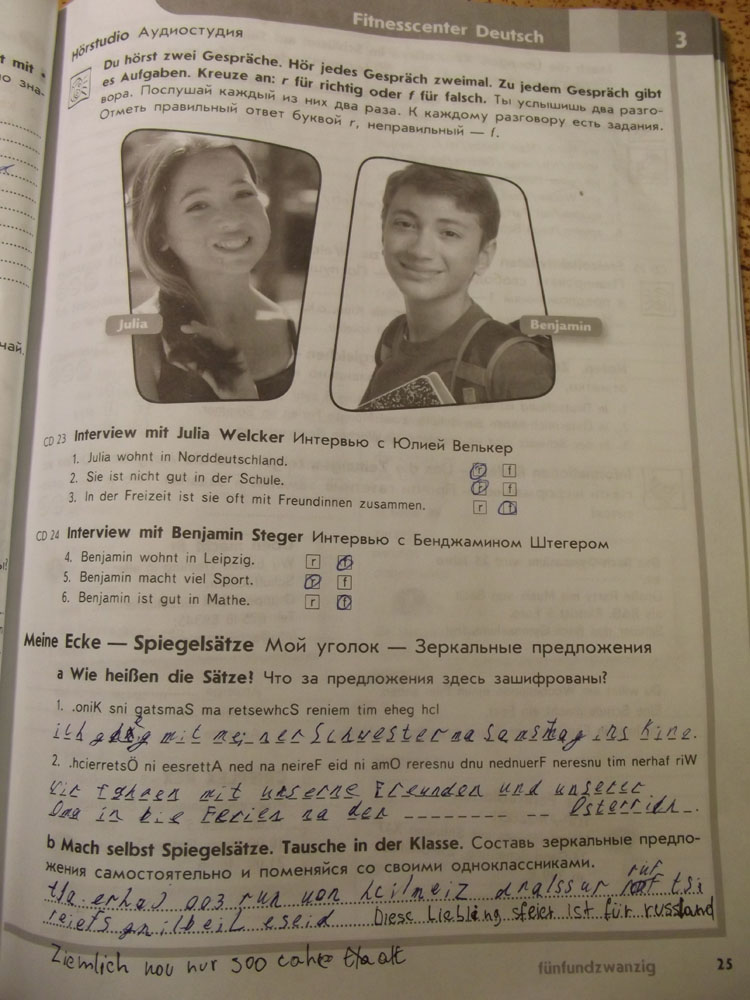 Fitnesscenter Deutsch
3
Hörstudio Аудиостудия
Du hörst zwei Gespräche. Hör jedes Gespräch zweimal. Zu jedem Gespräch gibt
es Aufgaben. Kreuze an: r für richtig oder f für falsch. Ты услышишь два разго-
вора. Послушай каждый из них два раза. К каждому разговору есть задания.
Отметь правильный ответ буквой r, неправильный — f.
Julia
Benjamin
CD 23 Interview mit Julia Welcker Интервью с Юлией Велькер
1. Julia wohnt in Norddeutschland. r f
2. Sie ist nicht gut in der Schule. r f
3. In der Freizeit ist sie oft mit Freundinnen zusammen. r f
CD 24 Interview mit Benjamin Steger Интервью с Бенджамином Штегером
4. Benjamin wohnt in Leipzig. r f
5. Benjamin macht viel Sport. r f
6. Benjamin ist gut in Mathe. r f
Meine Ecke — Spiegelsätze Мой уголок — Зеркальные предложения
a Wie heißen die Sätze? Что за предложения здесь зашифрованы?
1. .oniK sni gatsmaS ma retsewhcS reniem tim eheg hcI
ich mit meiner Schwester na Samstag ins Kino.
2. .hcierretsÖ ni eesrettA ned na neireF eid ni amO reresnu dnu nednuerF neresnu tim nerhaf riW
Wir fahren mit unserne Freunden und unserer
Oma in die Ferien na den Österrich.
b Mach selbst Spiegelsätze. Tausche in der Klasse. Составь зеркальные предло-
жения самостоятельно и поменяйся со своими одноклассниками.
rüf
nov hcilmeiz dnalssur tsi
reiefs gnilbeil eseid Diese Liebling sfeier ist für russland
Ziemlich nur 300
fünfundzwanzig 25